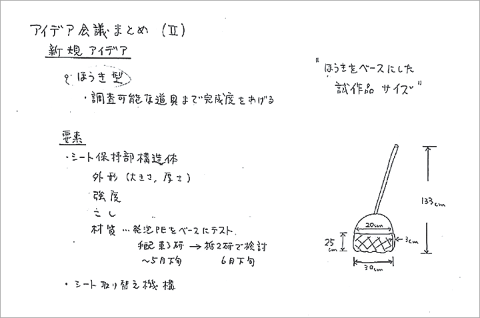 アイデア会議まとめ (Ⅱ)
新規アイデア
ほうき型
・調査可能な道具まで完成度をあげる
要素
・シート保持部構造体
外形 (大きさ, 厚さ)
強度
こし
材質 … 発泡PEをベースにテスト
→
で検討
〜5月下旬
6月下旬
・シート取り替え機構
"ほうきをベースにした
試作品サイズ"
133cm
20cm
25cm
3cm
30cm